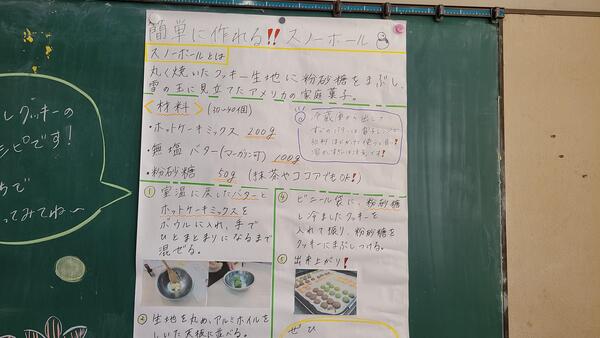 簡単に作れる!! スノーボール
スノーボールとは
丸く焼いたクッキー生地に粉砂糖をまぶし、
雪の玉に見立てたアメリカの家庭菓子。
〈材料〉(30〜40個)
・ホットケーキミックス 200g
・無塩バター(マーガリン可) 100g
・粉砂糖 50g (抹茶やココアでもOK!)
冷蔵庫から出して
すぐのバターは電子レンジで
① 室温に戻したバターと
ホットケーキミックスを
ボウルに入れ、手で
ひとまとまりになるまで
混ぜる。
② 生地を丸め、アルミホイルを
しいた天板に並べる。
④ ビニール袋に、粉砂糖
と冷ましたクッキーを
入れて振り、粉砂糖を
クッキーにまぶしつける。
⑤ 出来上がり!
ぜひ
クッキーの
シピです!
ちで
ってみてね〜